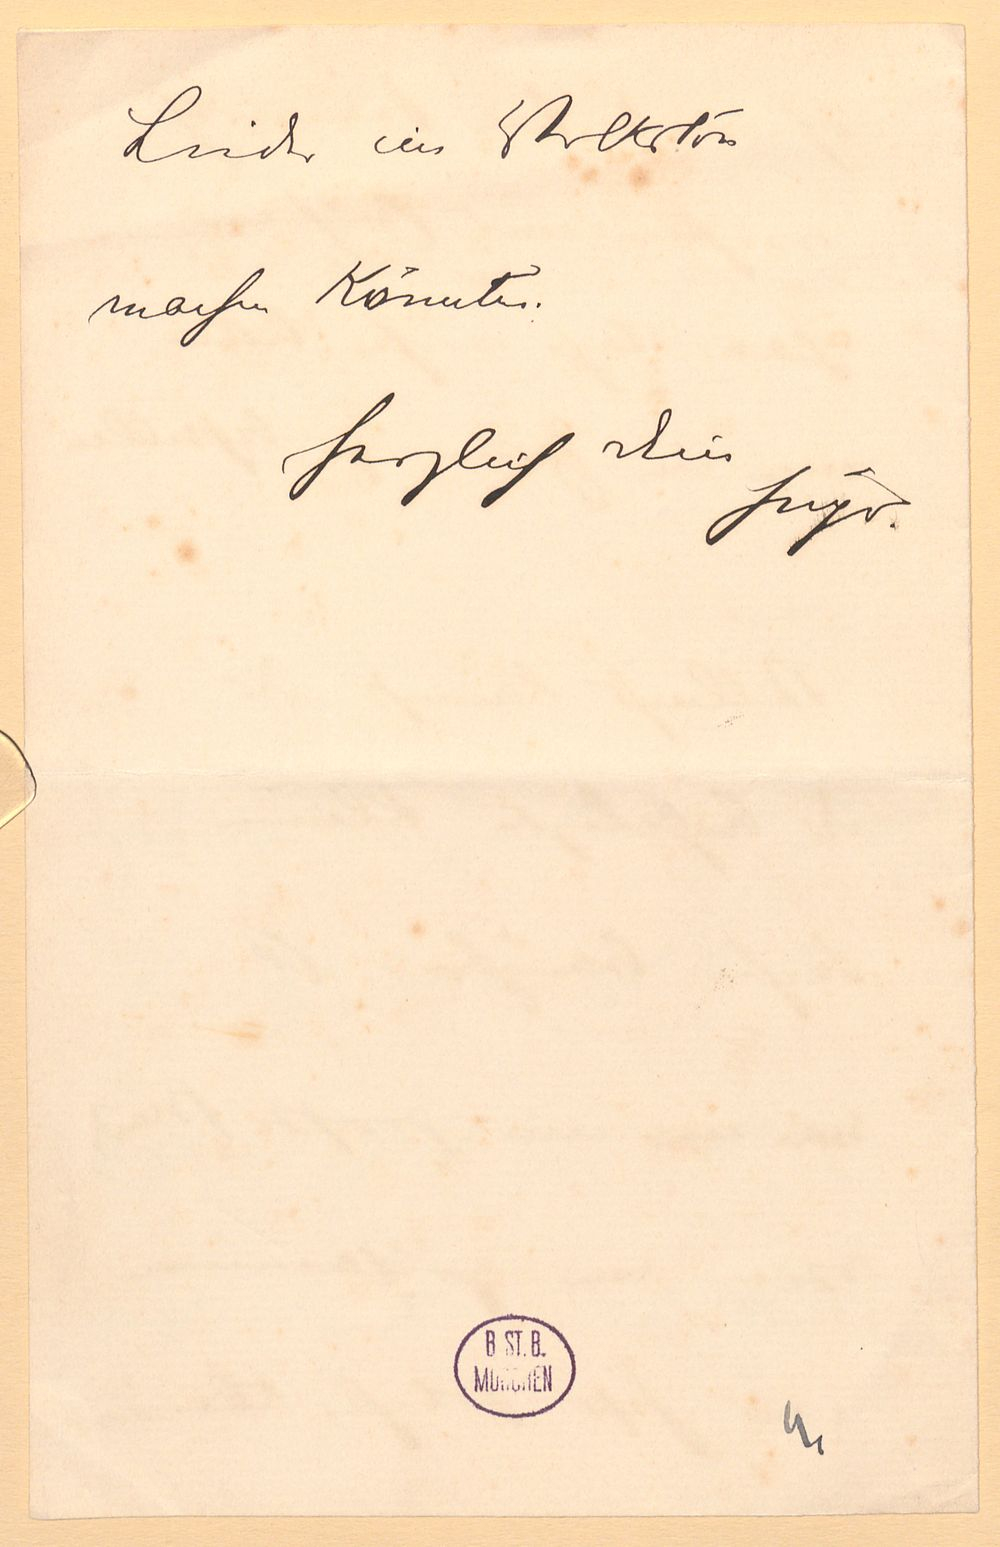 Lieder im Volkston
machen könnten.
herzlich Dein
Hugo.
B ST. B.
MÜNCHEN